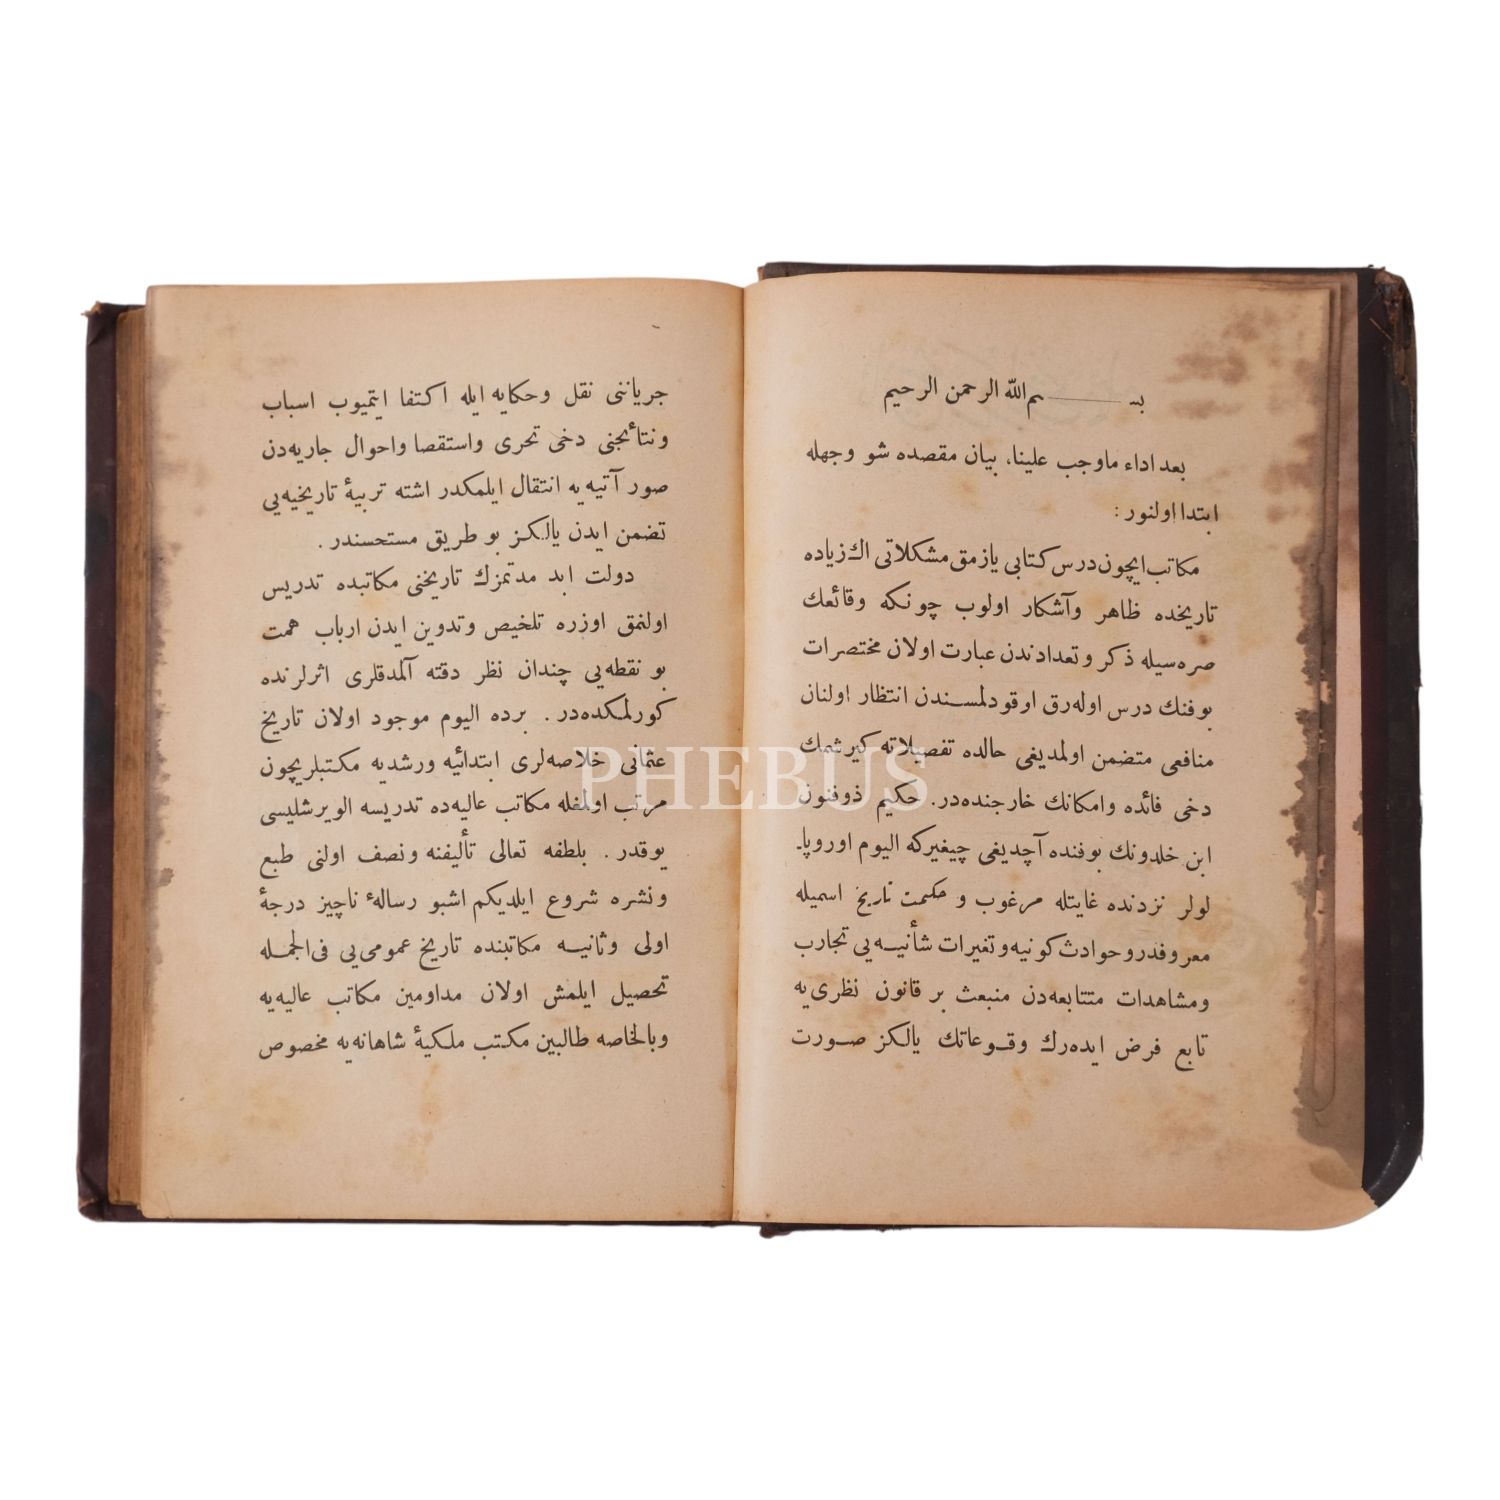 بسم الله الرحمن الرحيم
بعد اداء ماوجب علينا، بيان مقصده شو وجهله
ابتدا اولنور :
مكاتب ايچون درس كتابى يازمق مشكلاتى اك زياده
تاريخده ظاهر وآشكار اولوب چونكه وقائعك
صره سيله ذكر وتعدادندن عبارت اولان مختصرات
بوفنك درس اوله رق اوقودلمسندن انتظار اولنان
منافعى متضمن اولمديغى حالده تفصيلاته كيرشمك
دخى فائده وامكانك خارجنده در. حكيم ذوفنون
ابن خلدونك بوفنده آچديغى چيغيركه اليوم اوروپا_
لولر نزدنده غايتله مرغوب و حكمت تاريخ اسميله
معروفدر وحوادث كونيه وتغيرات شأنيه يى تجارب
ومشاهدات متتابعه دن منبعث بر قانون نظرى يه
تابع فرض ايده رك وقوعاتك يالكز صورت
جرياننى نقل وحكايه ايله اكتفا ايتميوب اسباب
ونتائجنى دخى تحرى واستقصا واحوال جاريه دن
صور آتيه يه انتقال ايلمكدر اشته تربيۀ تاريخيه يى
تضمن ايدن يالكز بو طريق مستحسندر .
دولت ابد مدتمزك تاريخنى مكاتبده تدريس
اولنمق اوزره تلخيص وتدوين ايدن ارباب همت
بو نقطه يى چندان نظر دقته آلمدقلرى اثرلرنده
كورلمكده در . برده اليوم موجود اولان تاريخ
عثمانى خلاصه لرى ابتدائيه ورشديه مكتبلريچون
مرتب اولمغله مكاتب عاليه ده تدريسه الويرشليسى
يوقدر . بلطفه تعالى تأليفنه ونصف اولنى طبع
ونشره شروع ايلديكم اشبو رسالۀ ناچيز درجۀ
اولى وثانيه مكاتبنده تاريخ عمومى يى فى الجمله
تحصيل ايلمش اولان مداومين مكاتب عاليه يه
وبالخاصه طالبين مكتب ملكيۀ شاهانه يه مخصوص
PHEBUS